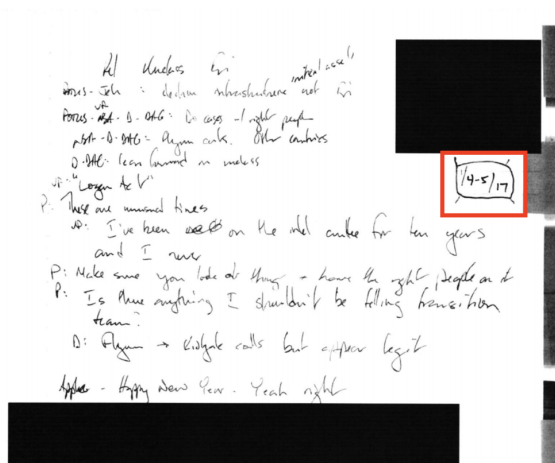 initial assets
- Jeh : election infrastructure not
VP
- D - DAG: cases - right people
NSA - D - DAG: Flynn cuts. Other countries
D - DAG: lean forward on unclass
VP: "Logan Act"
P: These are unusual times
VP: I've been on the intel cmttee for ten years
and I never
P: Make sure you look at things - have the right people on it
P: Is there anything I shouldn't be telling transition
team?
D: Flynn → Kislyak calls but appear legit
- Happy New Year. Yeah right
1/4-5/17